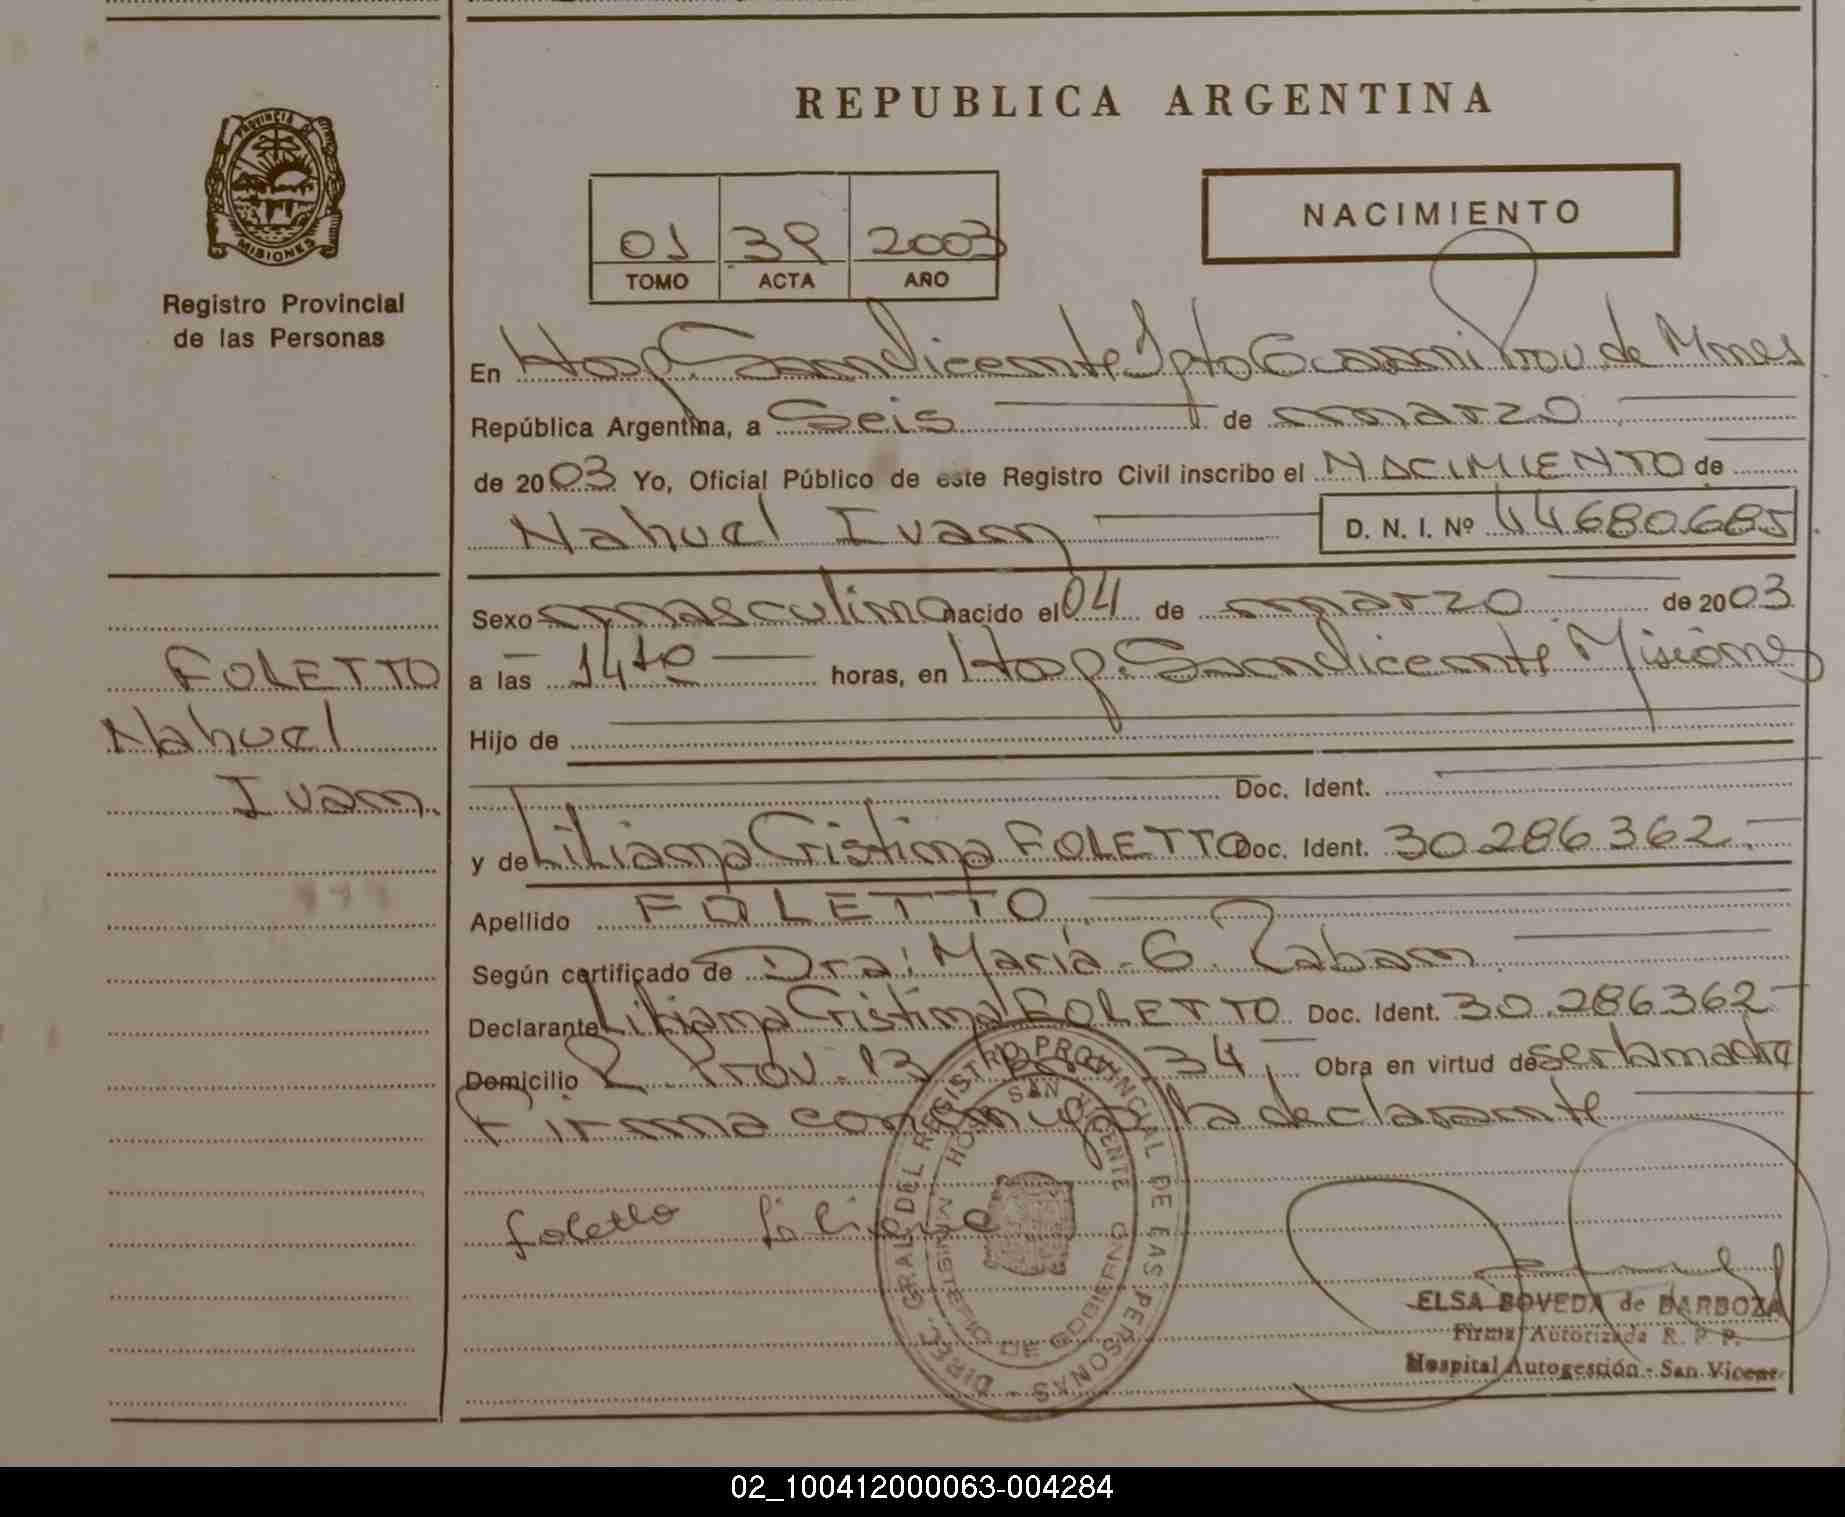 REPUBLICA ARGENTINA
PROVINCIA DE
MISIONES
Registro Provincial
de las Personas
01 39 2003
TOMO ACTA AÑO
NACIMIENTO
En Hosp. San Vicente Dpto Guarani Prov. de Mnes
República Argentina, a Seis de marzo
de 2003 Yo, Oficial Público de este Registro Civil inscribo el NACIMIENTO de
Nahuel Ivan D. N. I. Nº 44680.685
Sexo masculino nacido el 04 de marzo de 2003
a las 14 horas, en Hosp. San Vicente Misiones
Hijo de
Doc. Ident.
y de Liliana Cristina FOLETTO Doc. Ident. 30.286.362.-
Apellido FOLETTO
Según certificado de Dra: María G. Zaban
Declarante Liliana Cristina FOLETTO Doc. Ident. 30.286362-
Domicilio R. Prov. 13 34 Obra en virtud de ser la madre
Firma conmigo la declarante
FOLETTO
Nahuel
Ivan.
foletto liliana
DIREC. GRAL. DEL REGISTRO PROVINCIAL DE LAS PERSONAS
SAN VICENTE
MINISTERIO DE GOBIERNO
ELSA BOVEDA de BARBOZA
Firma Autorizada R. P. P.
Hospital Autogestión - San Vicente
02_100412000063-004284